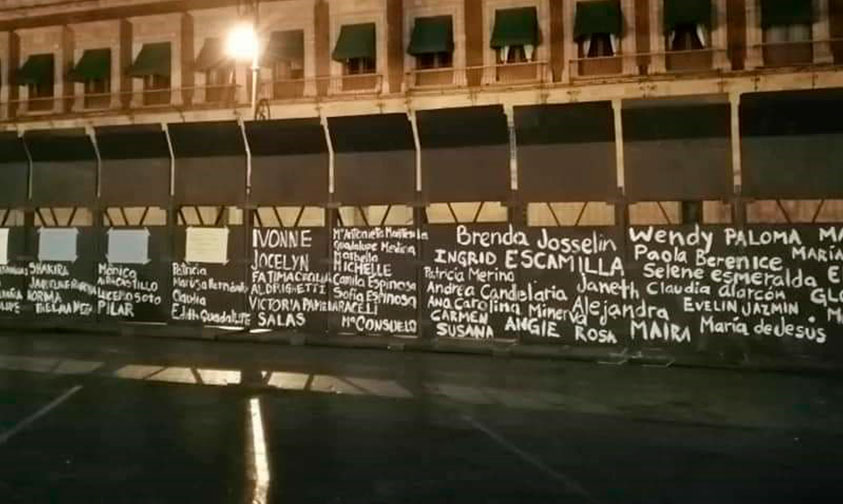 SHAKIRA
NORMA
Mónica
Lucero Soto
PILAR
Patricia
Marisa Hernández
Claudia
Edith Guadalupe
IVONNE
JOCELYN
FATIMA CECILIA
ALDRIGHETTI
VICTORIA PAMELA
SALAS
Mª Antonieta
Guadalupe Medina
Marbella
MICHELLE
Camila Espinosa
Sofia Espinosa
ARACELI
Mª CONSUELO
Brenda Josselin
INGRID ESCAMILLA
Patricia Merino
Andrea Candelaria Janeth
Ana Carolina Minerva Alejandra
CARMEN
SUSANA ANGIE ROSA
Wendy PALOMA MA
Paola Berenice MARÍA
Selene esmeralda E
Claudia alarcón GLO
EVELIN JAZMIN M
MAIRA María de Jesus